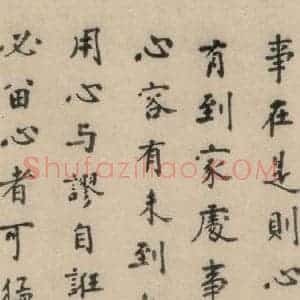 事在是則心
有到家處事
心容有未到
用心与謬自誑
必留心者可
Shufaziliao.COM